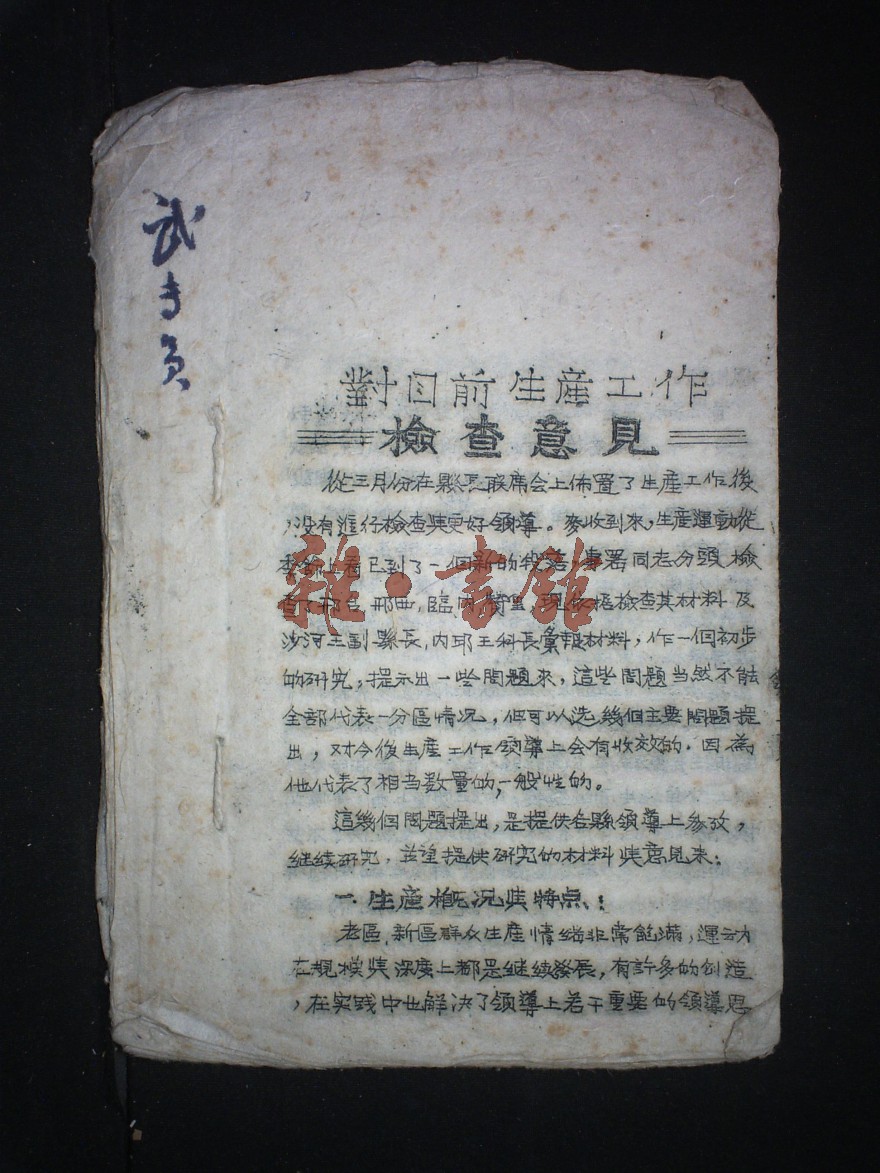 武
對目前生產工作
檢查意見
從三月份在縣長联席会上佈置了生産工作後
,没有進行檢查與更好領導。麥收到來,生産運動從
上看已到了一個新的 署同志分頭檢
查了邢台,邢西,臨内 現依据檢查其材料及
沙河王副縣長,内邱王科長彙報材料,作一個初步
的研究,提示出一些問題來,這些問題当然不能
全部代表一分區情况,但可以选幾個主要問題提
出,对今後生産工作領導上会有收效的.因為
他代表了相当数量的,一般性的。
這幾個問題提出,是提供各縣領導上参攷,
继续研究,並望提供研究的材料與意見来:
一.生産概况與特点:
老區,新區群众生産情緒非常飽滿,運动
在規模與深度上都是继续發展,有許多的创造
,在实践中也解决了領導上若干重要的領導思
雜·書館